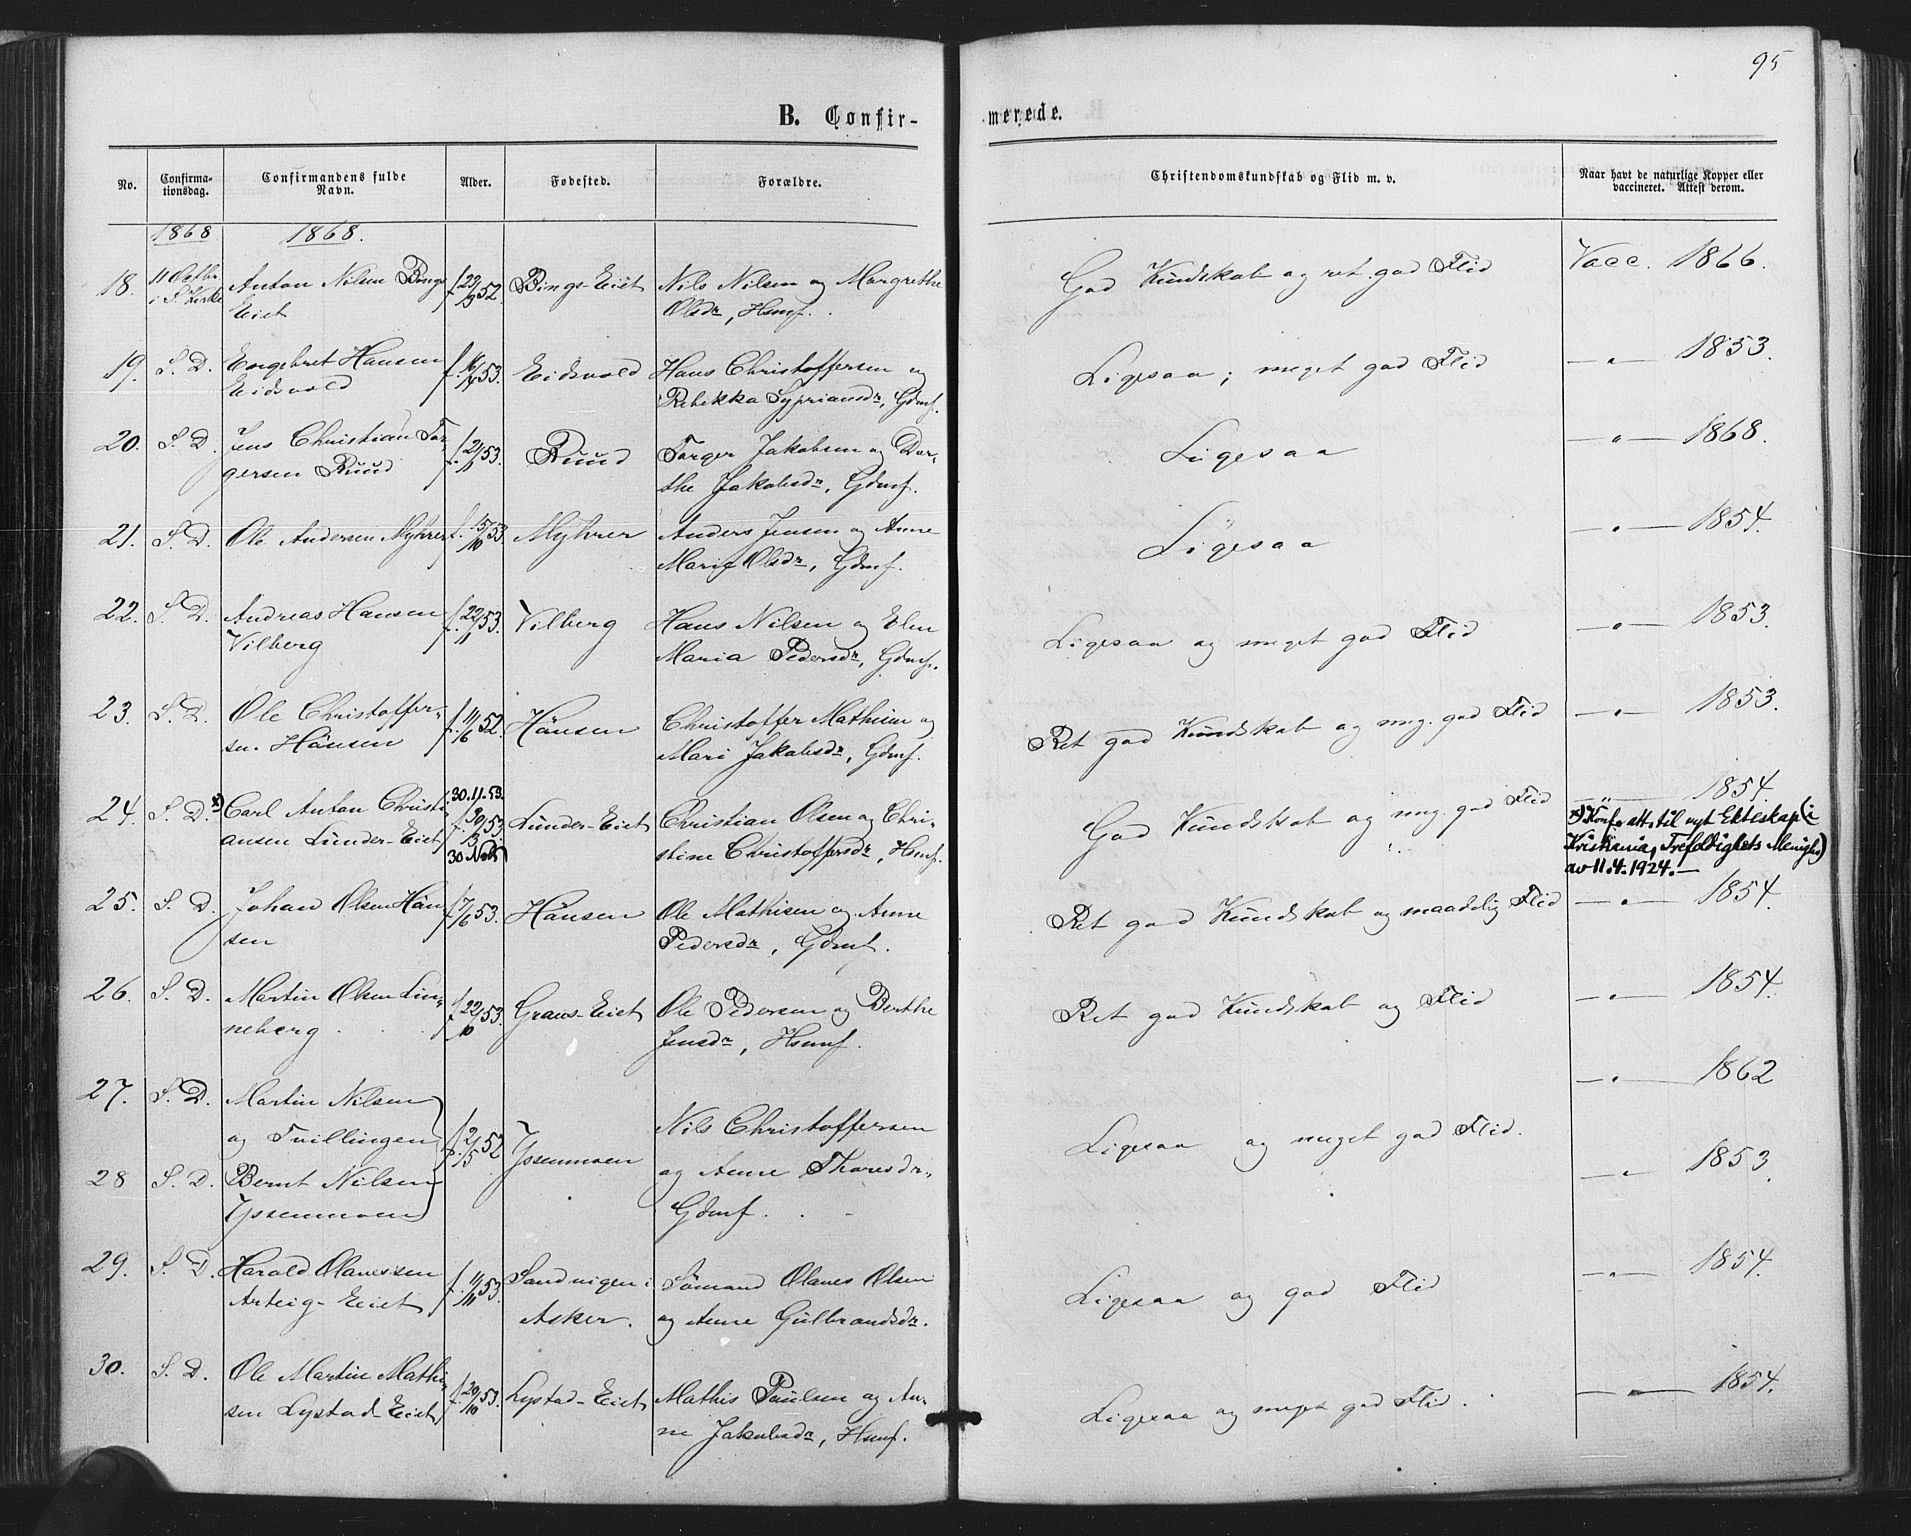 95
B. Confir-
merede.
No.
Confirma-
tionsdag.
Confirmandens fulde
Navn.
Alder.
Fødested.
Forældre.
Christendomskundskab og Flid m. v.
Naar havt de naturlige Kopper eller
vaccineret. Attest derom.
1868
1868.
18. 11 Octbr Anton Nilsen Bings f. 23/9 52. Bings-Eiet Nils Nilsen og Margrethe God Kundskab og ret god Flid Vacc. 1866.
i S. Kirke Eiet Olsdr, Hsmf.
19. S. D. Engebret Hansen f. 53. Eidsvold Hans Christoffersen og Ligesaa; meget god Flid -„- 1853.
Eidsvold Rebekka Sypriansdr, Gdmf.
20. S. D. Jens Christian Tor- f. 21/1 53. Ruud Torger Jakobsen og Dor- Ligesaa -„- 1868.
gersen Ruud the Jakobsdr, Gdmf.
21. S. D. Ole Andersen Myhrer f. 15/10 53 Myhrer Anders Jensen og Anne Ligesaa -„- 1854.
Marie Olsdr, Gdmf.
22. S. D. Andreas Hansen f. 22/11 53. Vilberg Hans Nilsen og Elen Ligesaa og meget god Flid -„- 1853.
Vilberg Maria Pedersdr, Gdmf.
23. S. D. Ole Christoffer- f. 11/6 52. Hånsen Christoffer Mathisen og Ret god Kundskab og meg. god Flid -„- 1853.
sen Hånsen Mari Jakobsdr, Gdmf.
24. S. D. x) Carl Anton Christi- 30.11.53. Lunder-Eiet Christian Olsen og Chri- God Kundskab og meg. god Flid -„- 1854.
ansen Lunder-Eiet f. 30/3 53 stine Christoffersdr, Hsmf.
30 Nov.
x) Konf. att. til nyt Ekteskap (i
Kristiania, Trefoldighets Menigh.)
av 11.4.1924.-
25. S. D. Johan Olsen Hån- f. 7/6 53. Hånsen Ole Mathisen og Anne Ret god Kundskab og maadelig Flid -„- 1854.
sen Pedersdr, Gdmf.
26. S. D. Martin Olsen Lin- f. 22/10 53. Graus-Eiet Ole Pedersen og Berthe Ret god Kundskab og Flid -„- 1854.
neberg Jensdr, Hsmf.
27. S. D. Martin Nilsen Nils Christoffersen -„- 1862
og Tvillingen f. 2/5 52 Yssenmoen og Anne Thoresdr- Ligesaa og meget god Flid.
28 S. D. Bernt Nilsen Gdmf. -„- 1853.
Yssenmoen
29. S. D. Harald Olavessen f. 11/11 53. Sandvigen i Sømand Olaves Olsen Ligesaa og god Flid -„- 1854.
Arteig-Eiet Asker. og Anne Gulbrandsdr.
30. S. D. Ole Martin Mathi- f. 20/10 53. Lystad-Eiet Mathis Paulsen og An- Ligesaa og meget god Flid. -„- 1854.
sen Lystad-Eiet ne Jakobsdr, Hsmf.